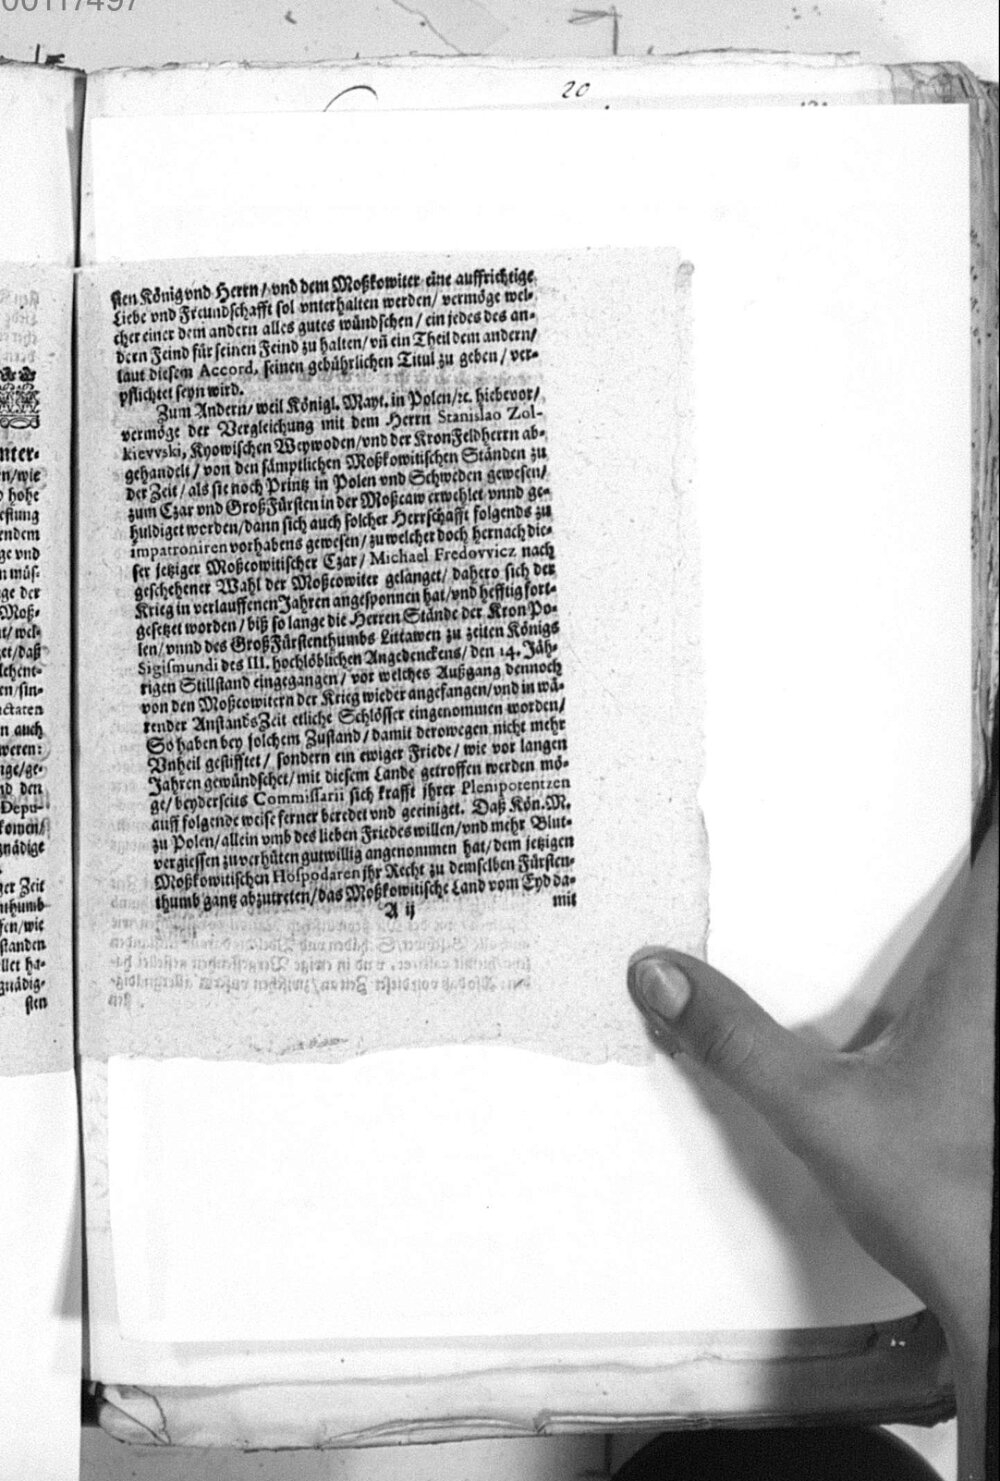 00117497
20
sten König vnd Herrn / vnd dem Moßkowiter eine auffrichtige
Liebe vnd Freundschafft sol vnterhalten werden / vermöge wel-
cher einer dem andern alles gutes wündschen / ein jedes des an-
dern Feind für seinen Feind zu halten / vñ ein Theil dem andern /
laut diesem Accord, seinen gebührlichen Titul zu geben / ver-
pflichtet seyn wird.
Zum Andern / weil Königl. Mayt. in Polen / ꝛc. hiebevor /
vermöge der Vergleichung mit dem Herrn Stanislao Zol-
kievvski, Kyowischen Weywoden / vnd der Kron Feldherrn ab-
gehandelt / von den sämptlichen Moßkowitischen Ständen zu
der Zeit / als sie noch Printz in Polen vnd Schweden gewesen /
zum Czar vnd GroßFürsten in der Moßcaw erwehlet vnnd ge-
huldiget worden / dann sich auch solcher Herrschafft folgends zu
impatroniren vorhabens gewesen / zu welcher doch hernach die-
ser jetziger Moßcowitischer Czar / Michael Fredovvicz nach
geschehener Wahl der Moßcowiter gelanget / dahero sich der
Krieg in verlauffenen Jahren angesponnen hat / vnd hefftig fort-
gesetzet worden / biß so lange die Herren Stände der Kron Po-
len / vnnd des GroßFürstenthumbs Littawen zu zeiten Königs
Sigismundi des III. hochlöblichen Angedenckens / den 14. Jäh-
rigen Stillstand eingegangen / vor welches Außgang dennoch
von den Moßcowitern der Krieg wieder angefangen / vnd in wä-
render AnstandsZeit etliche Schlösser eingenommen worden /
So haben bey solchem Zustand / damit derowegen nicht mehr
Vnheil gestifftet / sondern ein ewiger Friede / wie vor langen
Jahren gewündschet / mit diesem Lande getroffen werden mö-
ge / beyderseits Commissarii sich krafft jhrer Plenipotentzen
auff folgende weise ferner beredet vnd geeiniget. Daß Kön. M.
zu Polen / allein vmb des lieben Friedes willen / vnd mehr Blut-
vergiessen zu verhüten gutwillig angenommen hat / dem jetzigen
Moßkowitischen Hospodaren jhr Recht zu demselben Fürsten-
thumb gantz abzutreten / das Moßkowitische Land vom Eyd da-
A ij
mit
nter-
n / wie
hohe
estung
endem
ge vnd
n müs-
ge der
Moß-
t / wel-
et / daß
lehent-
en / sin-
ctaten
n auch
weren:
nge / ge-
nd den
Depu-
komen /
gnädige
ger Zeit
nthumb
fen / wie
standen
llet ha-
gnädig-
sten